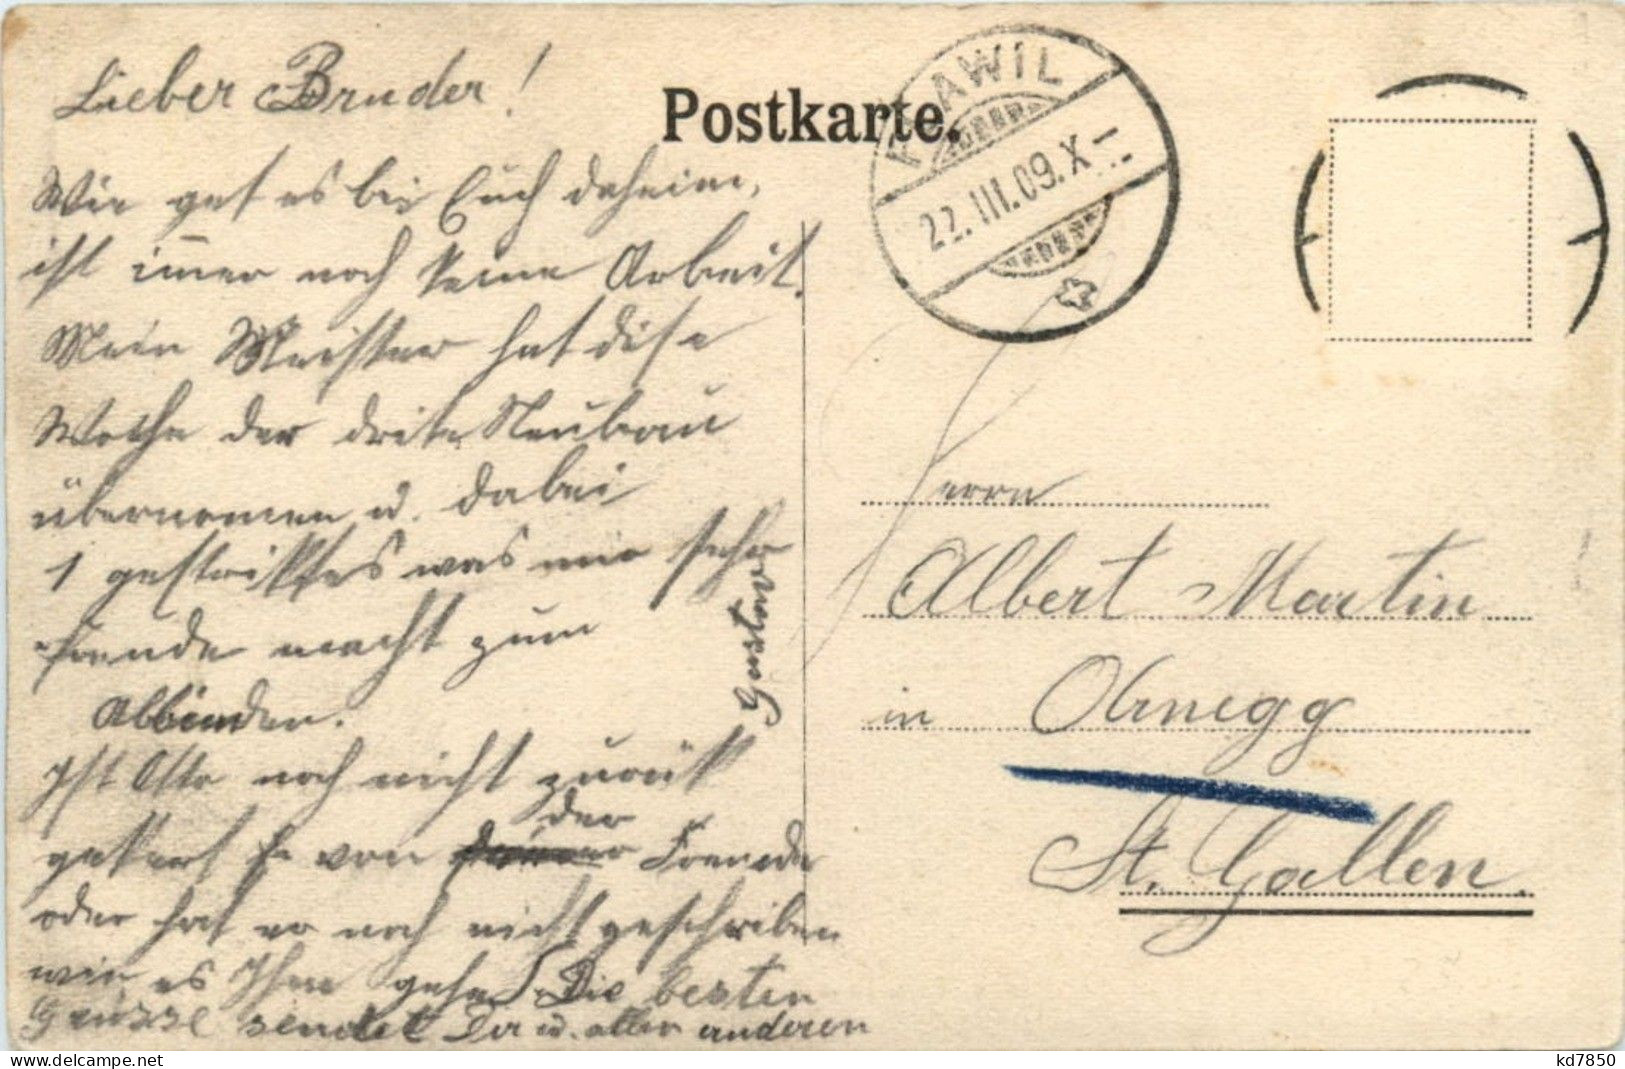 Lieber Bruder!
Wie get es bei Euch daheim,
ist immer noch keine Arbeit.
Mein Meister hat dise
Woche der drite Neubau
übernomen u. dabei
1 gestriktes was mir sehr
Freude macht zum
Abbinden.
Ist Otto noch nicht zurük
gekert von der Fremde
oder hat er noch nicht geschriben
wie es Ihm gehe. Die besten
Grüsse sendet Dir u. allen anderen
Gustav
Postkarte.
FLAWIL
22.III.09.X-
Herrn
Albert Martin
in Obnegg
St. Gallen.
delcampe.net
kd7850